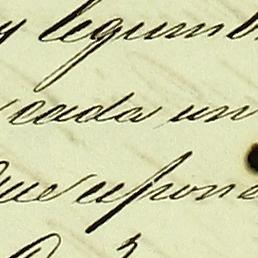 y legumb
cada un
que espone